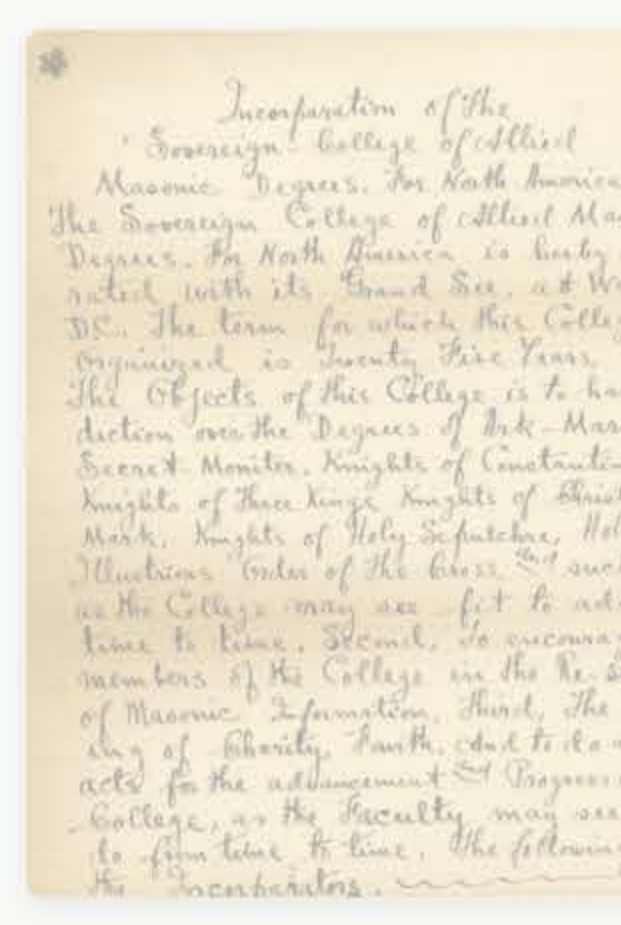 Incorporation of The
Sovereign College of Allied
Masonic Degrees. For North America
The Sovereign College of Allied Mas
Degrees. For North America is herby
rated with its Grand See. at Wa
DC. The term for which this Colleg
Organized is Twenty Five Years.
The Objects of this College is to ha
diction over the Degrees of Ark-Mar
Secret Moniter. Knights of Constanti
Knights of Three Kings Knights of Christ
Mark. Knights of Holy Sepulchre, Hol
Illustrious Order of the Cross. And such
as the College may see fit to ad
time to time. Second, To encourag
members of the College in the Re-s
of Masonic Information. Third, The
ing of Charity. Fourth. And to do a
acts for the advancement And Progress
College, as the Faculty may see
to from time to time. The following
the Incorporators.